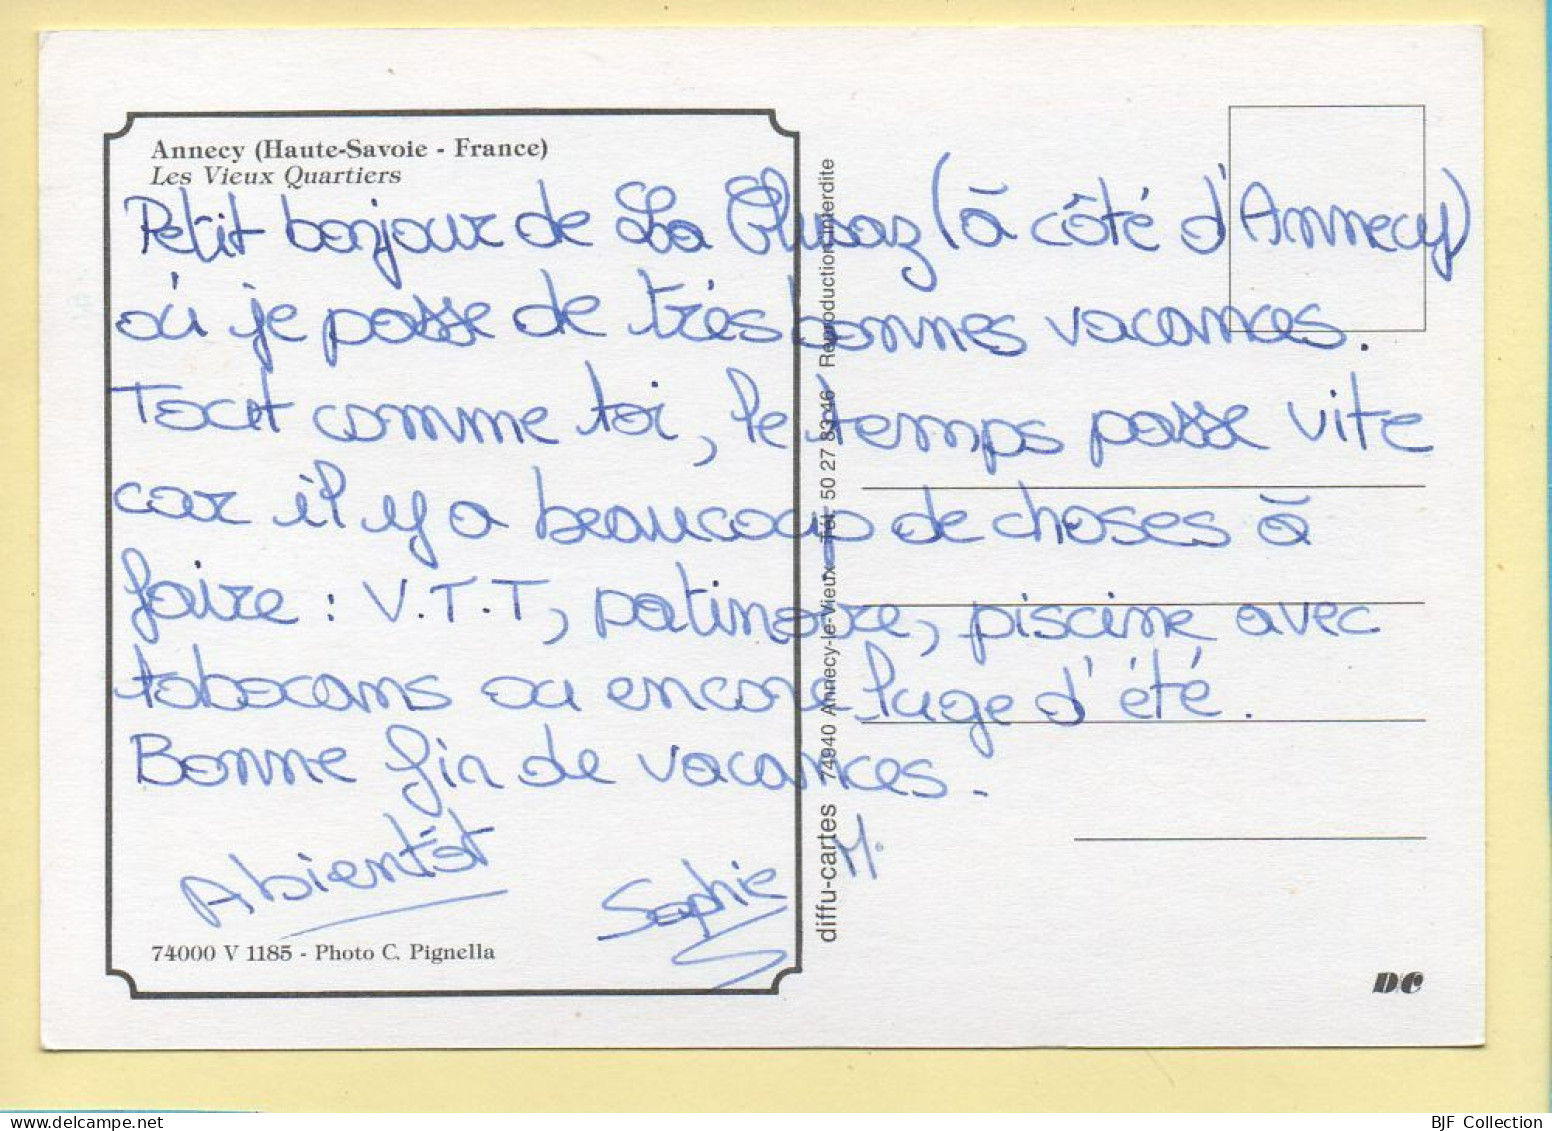 Annecy (Haute-Savoie - France)
Les Vieux Quartiers
Petit bonjour de La Clusaz (à côté d'Annecy)
où je passe de très bonnes vacances.
Tout comme toi, le temps passe vite
car il y a beaucoup de choses à
faire : V.T.T, patinoire, piscine avec
tobocans ou encore luge d'été.
Bonne fin de vacances.
A bientôt
Sophie M.
74000 V 1185 - Photo C. Pignella
diffu-cartes 74940 Annecy-le-Vieux - Tél. 50 27 83 46 Reproduction interdite
D/C
BJF Collection